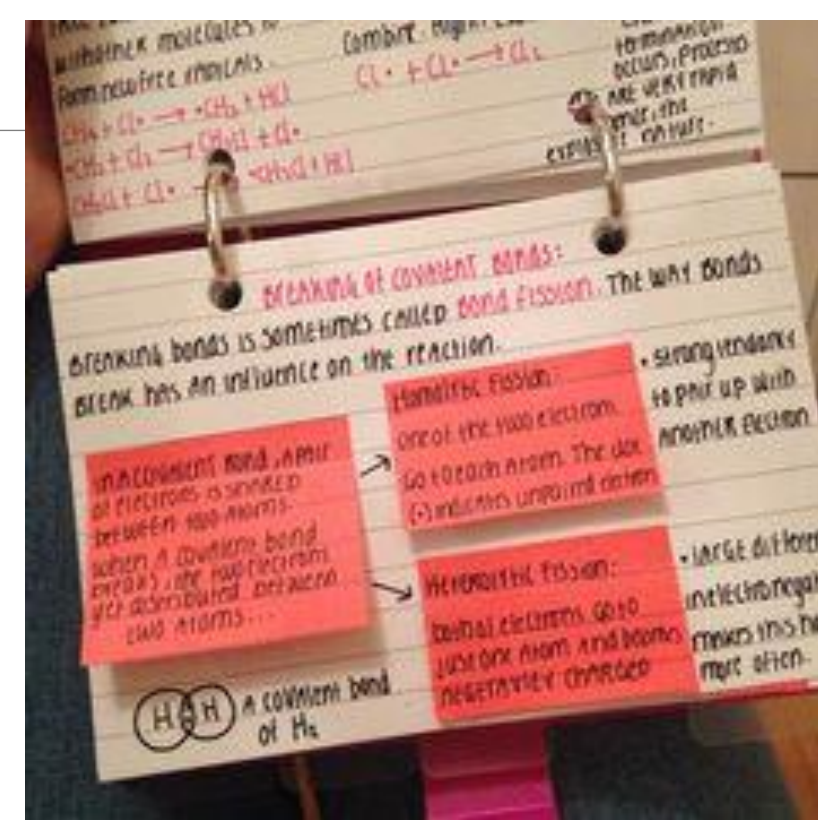 with other molecules to
form new free radicals.
CH₄ + Cl• → •CH₃ + HCl
•CH₃ + Cl₂ → CH₃Cl + Cl•
CH₃Cl + Cl• → •CH₂Cl + HCl
combine.
Cl• + Cl• → Cl₂
termination
occurs, processes
are very rapid
hence, the
explosive nature.
Breaking of covalent bonds:
Breaking bonds is sometimes called Bond fission. The way bonds
break has an influence on the reaction.
In a covalent bond, a pair
of electrons is shared
between two atoms.
When a covalent bond
breaks, the two electrons
get distributed between
two atoms...
Homolytic fission:
one of the two electrons
go to each atom. The dot
(•) indicates unpaired electron
• strong tendancy
to pair up with
another electron
Heterolytic fission:
both electrons go to
just one atom and becoms
negatively charged
• large
in
makes this
more often.
H H
A covalent bond
of H₂